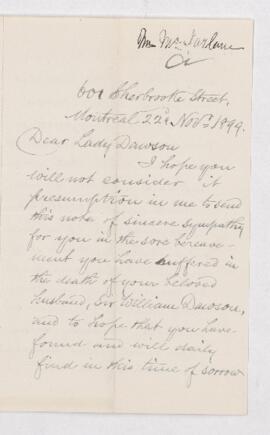 Wm McFarlane
601 Sherbrooke Street,
Montreal 22d Novr 1899.
Dear Lady Dawson
I hope you
will not consider it
presumption in me to send
this note of sincere sympathy
for you in the sore bereave-
ment you have suffered in
the death of your beloved
husband, Sir William Dawson,
and to hope that you have
found and will daily
find in this time of sorrow